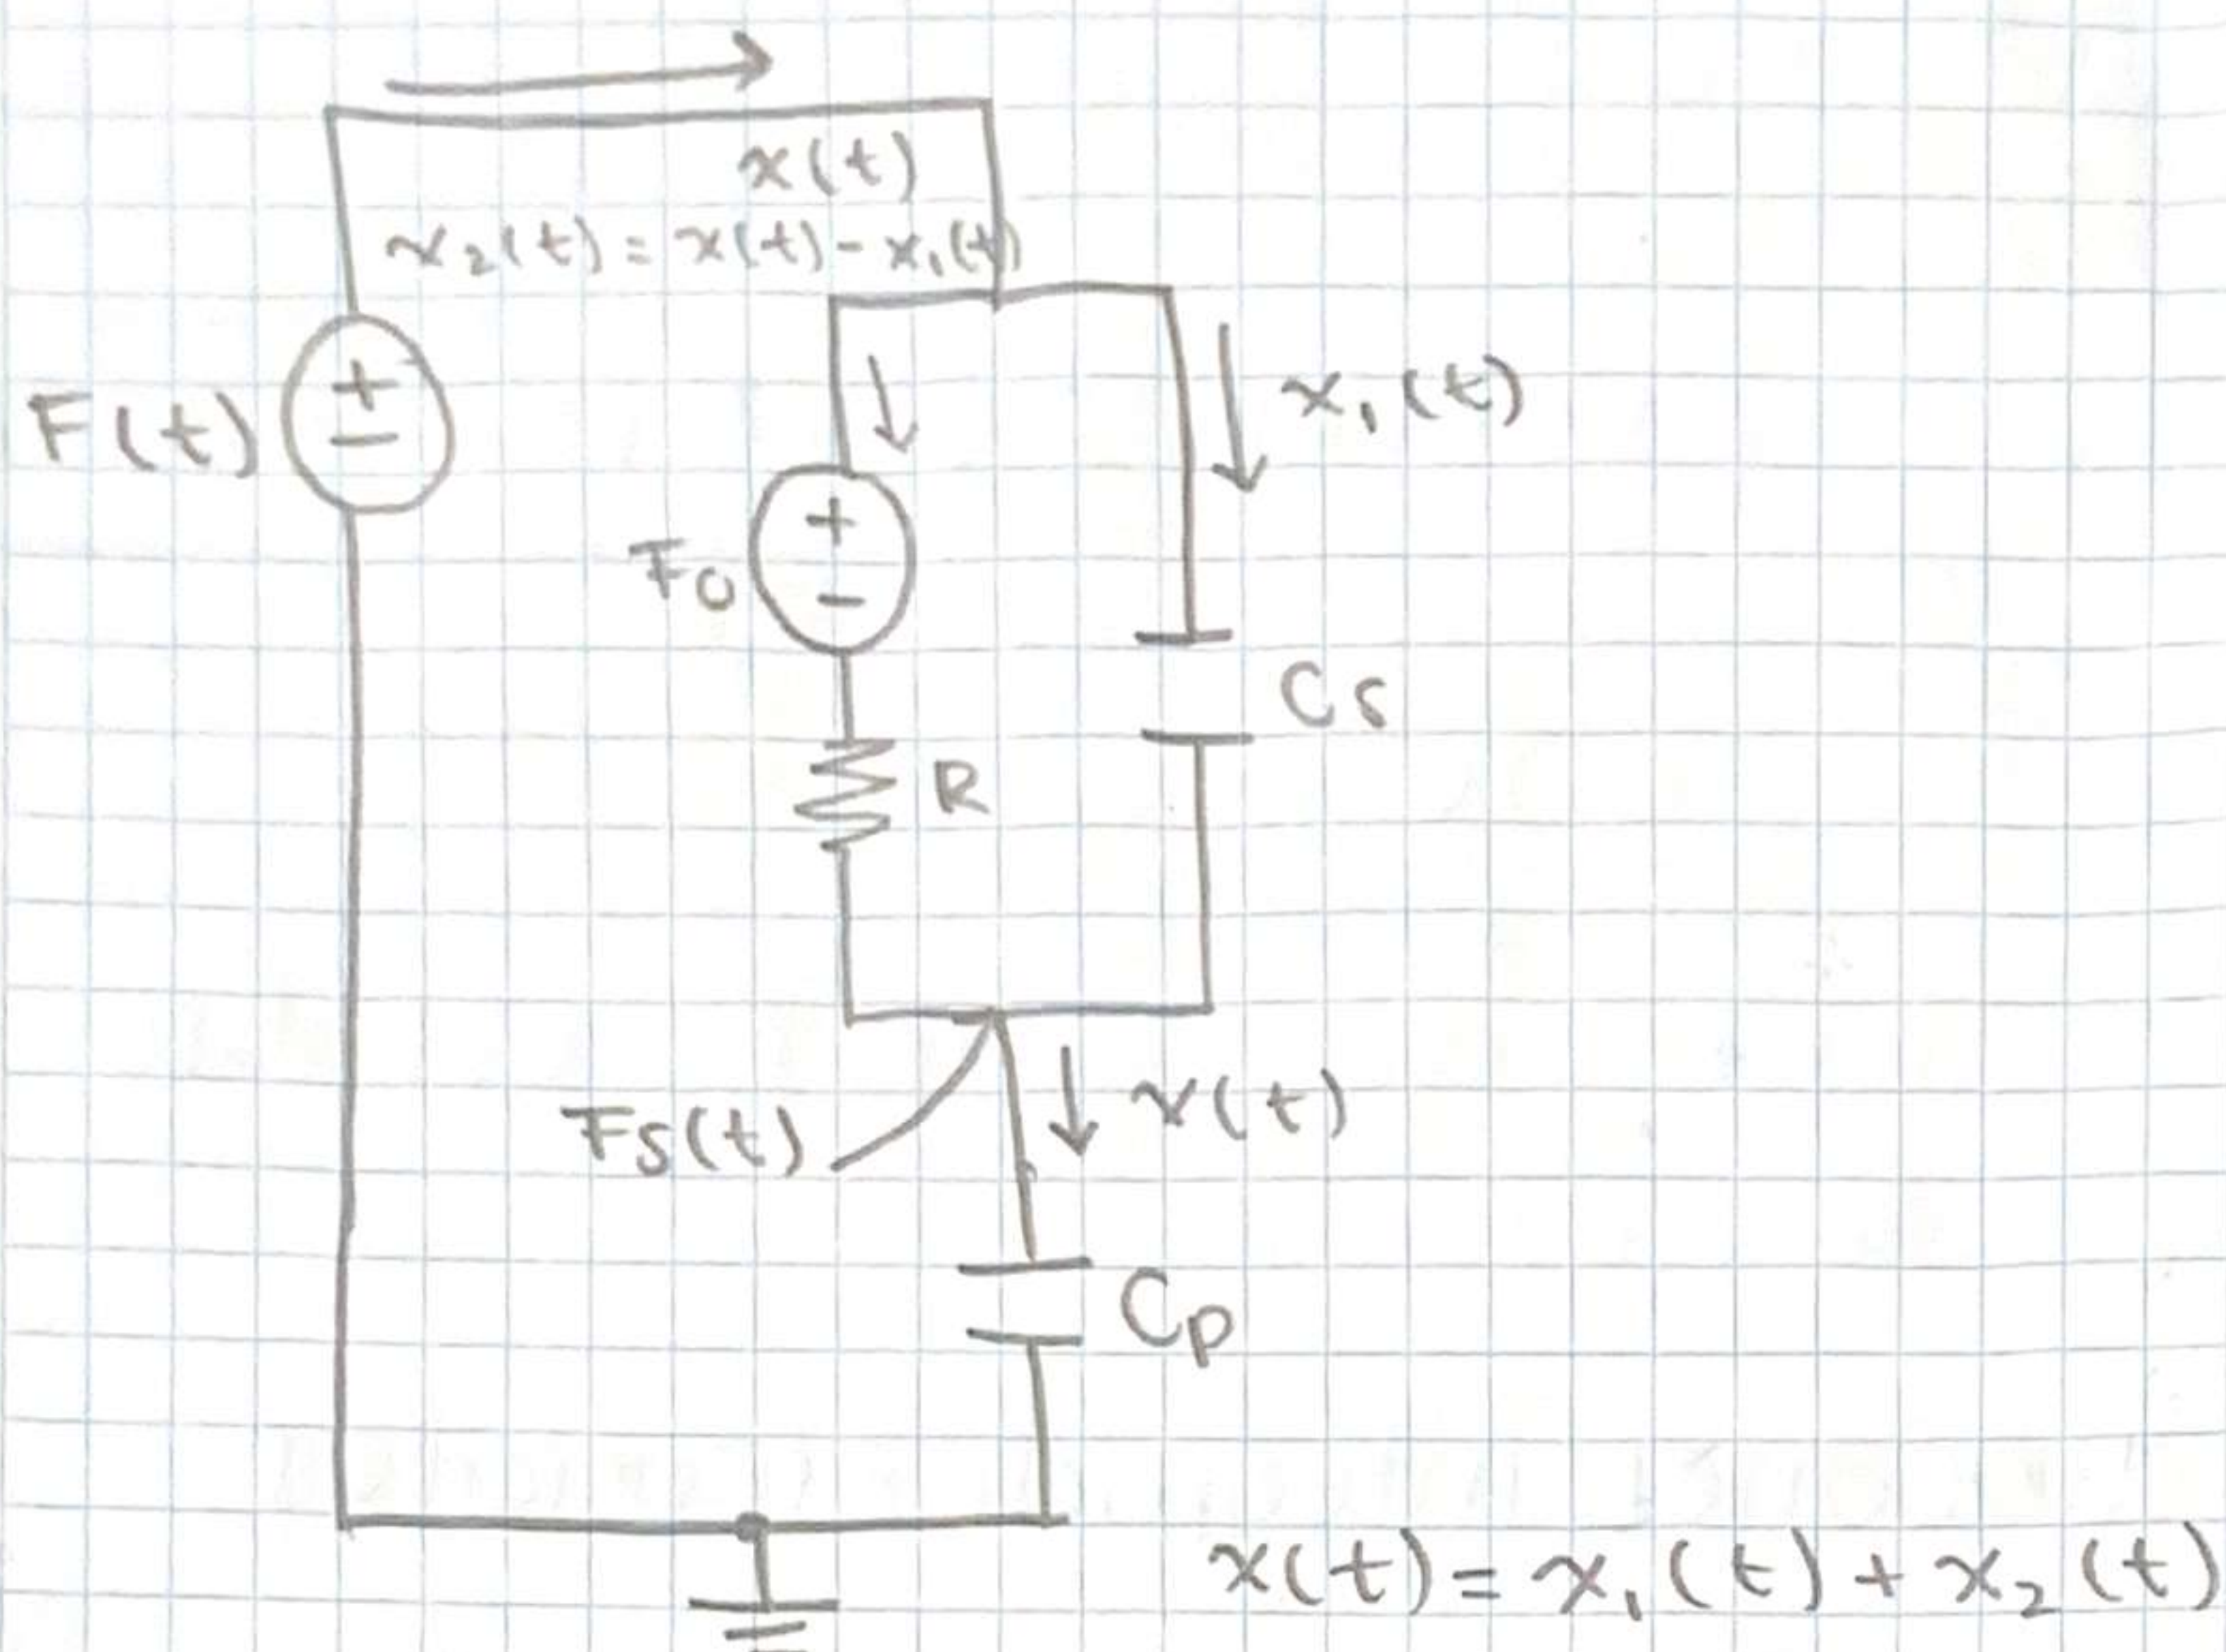 x(t)
x₂(t) = x(t) - x₁(t)
F(t)
+
-
x₁(t)
F₀
+
-
Cs
R
Fs(t)
x(t)
Cp
x(t) = x₁(t) + x₂(t)